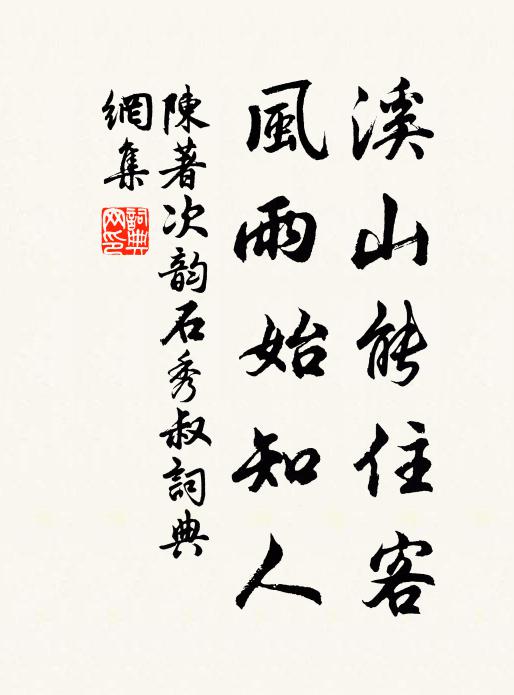 溪山能住客
風雨始知人
陳著次韵石秀叔詞典
網集
詞典
网印